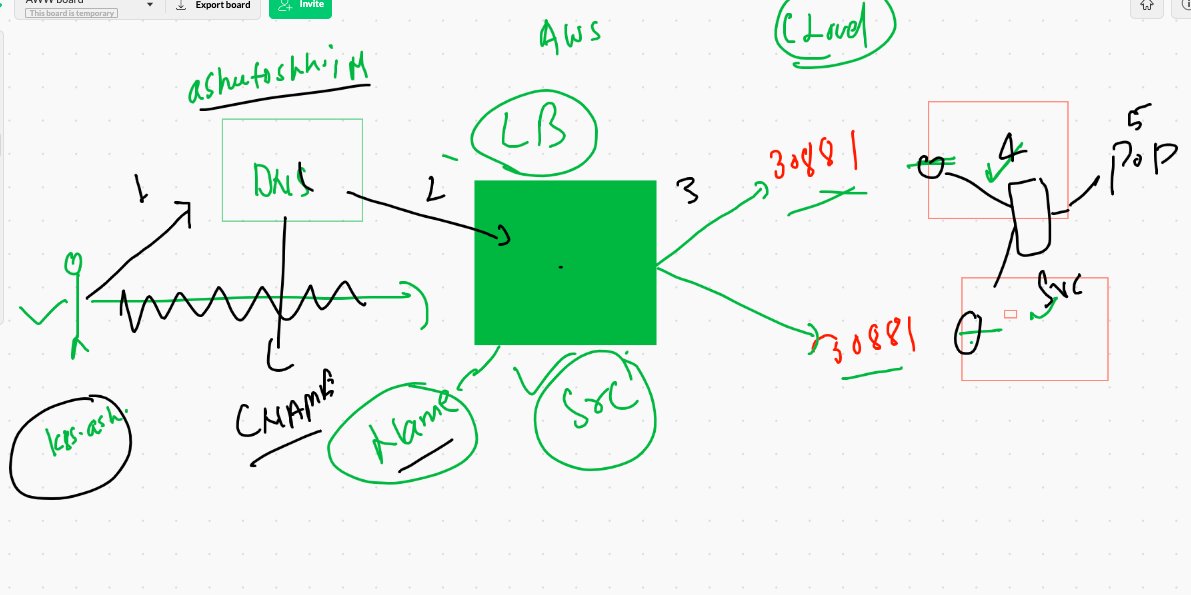 AWW Board
This board is temporary
Export board
Invite
AWS
Cloud
ashutoshh
LB
5
4
30881
POP
DNS
1
2
3
Src
30881
CNAME
Name
Src
k8s.ash.